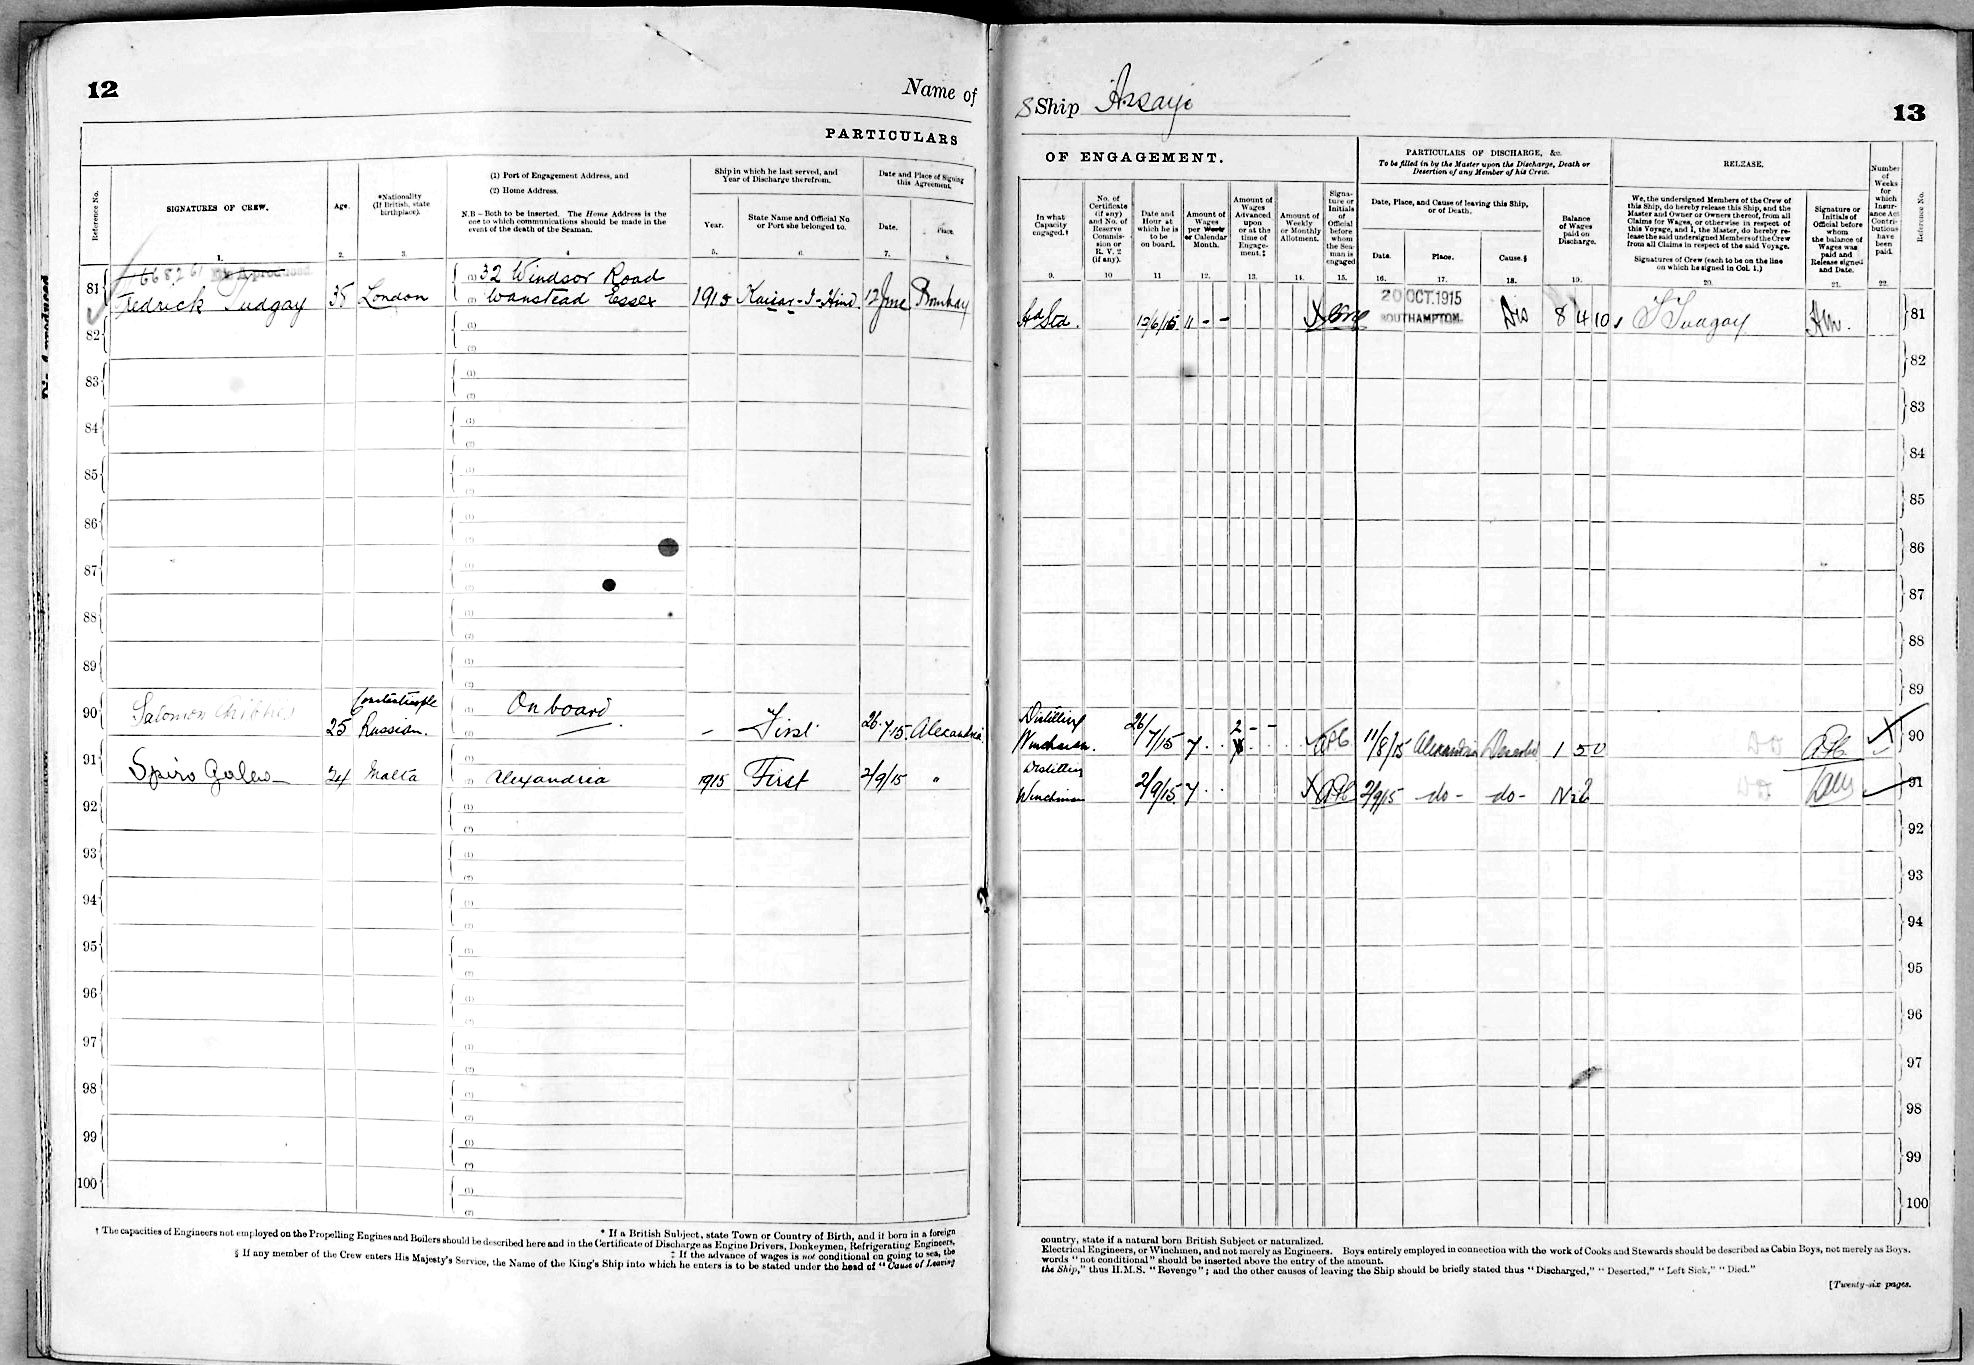 12
Name of
PARTICULARS
Reference No.
SIGNATURES OF CREW.
Age.
*Nationality
(If British, state
birthplace).
(1) Port of Engagement Address, and
(2) Home Address.
N.B – Both to be inserted. The Home Address is the
one to which communications should be made in the
event of the death of the Seaman.
Ship in which he last served, and
Year of Discharge therefrom.
Year.
State Name and Official No
or Port she belonged to.
Date and Place of Signing
this Agreement.
Date.
Place.
1. 2. 3. 4 5. 6. 7. 8
81 Fedrick Tudgay 35 London
(1) 32 Windsor Road
(2) Wanstead Essex
1915 Kaisar-I-Hind 12 June Bombay
82
83
84
85
86
87
88
89
90 Salomon 25 Constantinople
Russian.
On board
– First 26.7.15 Alexandria
91 Spiro Galea 24 Malta Alexandria 1915 First 2/9/15 "
92
93
94
95
96
97
98
99
100
† The capacities of Engineers not employed on the Propelling Engines and Boilers should be described here and in the Certificate of Discharge as Engine Drivers, Donkeymen, Refrigerating Engineers,
* If a British Subject, state Town or Country of Birth, and if born in a foreign
‡ If the advance of wages is not conditional on going to sea, the
§ If any member of the Crew enters His Majesty's Service, the Name of the King's Ship into which he enters is to be stated under the head of "Cause of Leaving
S Ship Assaye
13
OF ENGAGEMENT.
In what
Capacity
engaged.†
No. of
Certificate
(if any)
and No. of
Reserve
Commis-
sion or
R. V. 2
(if any).
Date and
Hour at
which he is
to be
on board.
Amount of
Wages
per Week
or Calendar
Month.
Amount of
Wages
Advanced
upon
or at the
time of
Engage-
ment.‡
Amount of
Weekly
or Monthly
Allotment.
Signa-
ture or
Initials
of
Official
before
whom
the Sea-
man is
engaged
PARTICULARS OF DISCHARGE, &c.
To be filled in by the Master upon the Discharge, Death or
Desertion of any Member of his Crew.
Date, Place, and Cause of leaving this Ship,
or of Death.
Date.
Place.
Cause.§
Balance
of Wages
paid on
Discharge.
RELEASE.
We, the undersigned Members of the Crew of
this Ship, do hereby release this Ship, and the
Master and Owner or Owners thereof, from all
Claims for Wages, or otherwise in respect of
this Voyage, and I, the Master, do hereby re-
lease the said undersigned Members of the Crew
from all Claims in respect of the said Voyage.
Signatures of Crew (each to be on the line
on which he signed in Col. 1.)
Signature or
Initials of
Official before
whom
the balance of
Wages was
paid and
Release signed
and Date.
Number
of
Weeks
for
which
Insur-
ance Act
Contri-
butions
have
been
paid.
Reference No.
9. 10 11 12. 13. 14. 15. 16. 17. 18. 19. 20. 21. 22.
12/6/15 11 - - 20 OCT. 1915 SOUTHAMPTON Dis 8 4 10 F Tudgay 81
82
83
84
85
86
87
88
89
Distilling
Winchman. 26/7/15 7 . . 2 - - 11/8/15 Alexandria Deserted 1 5 0 90
Distilling
Winchman 2/9/15 7 . . 2/9/15 -do- -do- Nil 91
92
93
94
95
96
97
98
99
100
country, state if a natural born British Subject or naturalized.
Electrical Engineers, or Winchmen, and not merely as Engineers. Boys entirely employed in connection with the work of Cooks and Stewards should be described as Cabin Boys, not merely as Boys.
words "not conditional" should be inserted above the entry of the amount.
the Ship," thus H.M.S. "Revenge"; and the other causes of leaving the Ship should be briefly stated thus "Discharged," "Deserted," "Left Sick," "Died."
[Twenty-six pages.